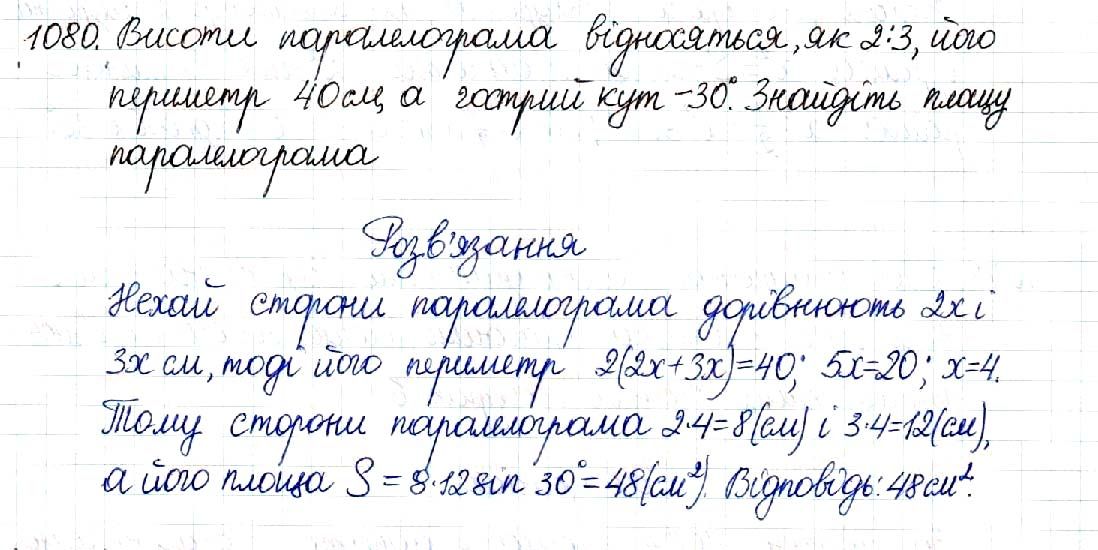 1080. Висоти паралелограма відносяться, як 2:3, його
периметр 40см, а гострий кут -30°. Знайдіть площу
паралелограма
Розв'язання
Нехай сторони паралелограма дорівнюють 2x і
3x см, тоді його периметр 2(2x+3x)=40; 5x=20; x=4.
Тому сторони паралелограма 2·4=8(см) і 3·4=12(см),
а його площа S = 8·12sin 30°=48(см²). Відповідь: 48см².